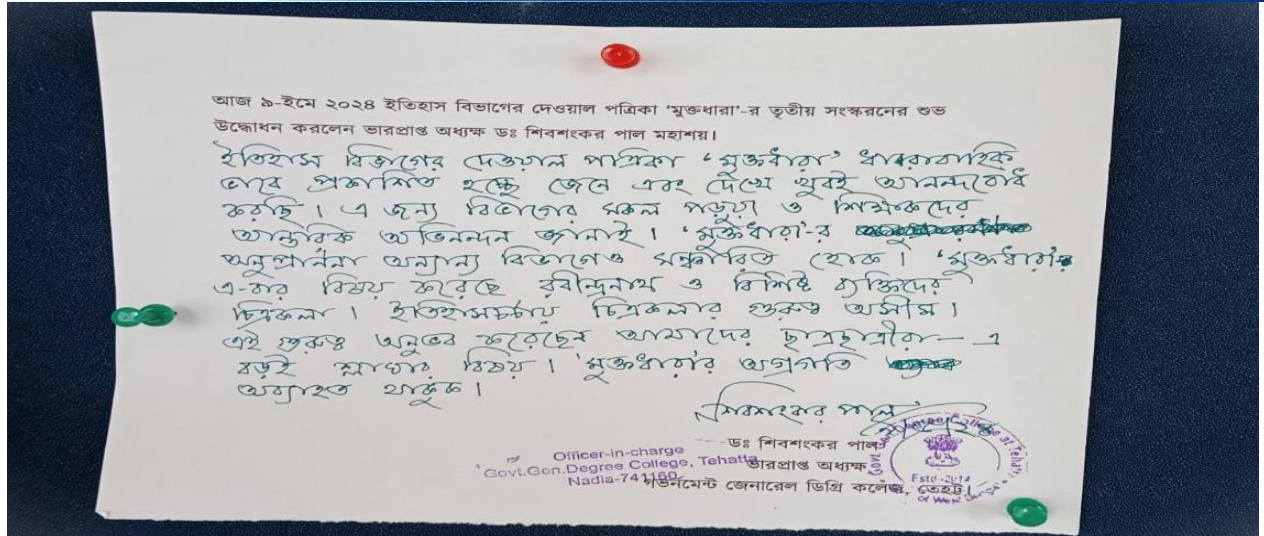 আজ ৯-ইমে ২০২৪ ইতিহাস বিভাগের দেওয়াল পত্রিকা ‘মুক্তধারা’-র তৃতীয় সংস্করনের শুভ
উদ্ধোধন করলেন ভারপ্রাপ্ত অধ্যক্ষ ডঃ শিবশংকর পাল মহাশয়।
ইতিহাস বিভাগের দেওয়াল পত্রিকা ‘মুক্তধারা’ ধারাবাহিক
ভাবে প্রকাশিত হচ্ছে জেনে এবং দেখে খুবই আনন্দবোধ
করছি। এ জন্য বিভাগের সকল পড়ুয়া ও শিক্ষকদের
আন্তরিক অভিনন্দন জানাই। ‘মুক্তধারা’-র
অনুপ্রাননা অন্যান্য বিভাগেও সঞ্চারিত হোক। ‘মুক্তধারা’র
এ-বার বিষয় করেছে রবীন্দ্রনাথ ও বিশিষ্ট ব্যক্তিদের
চিত্রকলা। ইতিহাসচর্চায় চিত্রকলার গুরুত্ব অসীম।
এই গুরুত্ব অনুভব করেছেন আমাদের ছাত্রছাত্রীরা— এ
বড়ই শ্লাঘার বিষয়। ‘মুক্তধারা’র অগ্রগতি
অব্যাহত থাকুক।
শিবশংকর পাল
ডঃ শিবশংকর পাল
Officer-in-charge
Govt.Gen.Degree College, Tehatta
ভারপ্রাপ্ত অধ্যক্ষ
Nadia-741160
গভর্নমেন্ট জেনারেল ডিগ্রি কলেজ, তেহট্ট।
Estd.-2014